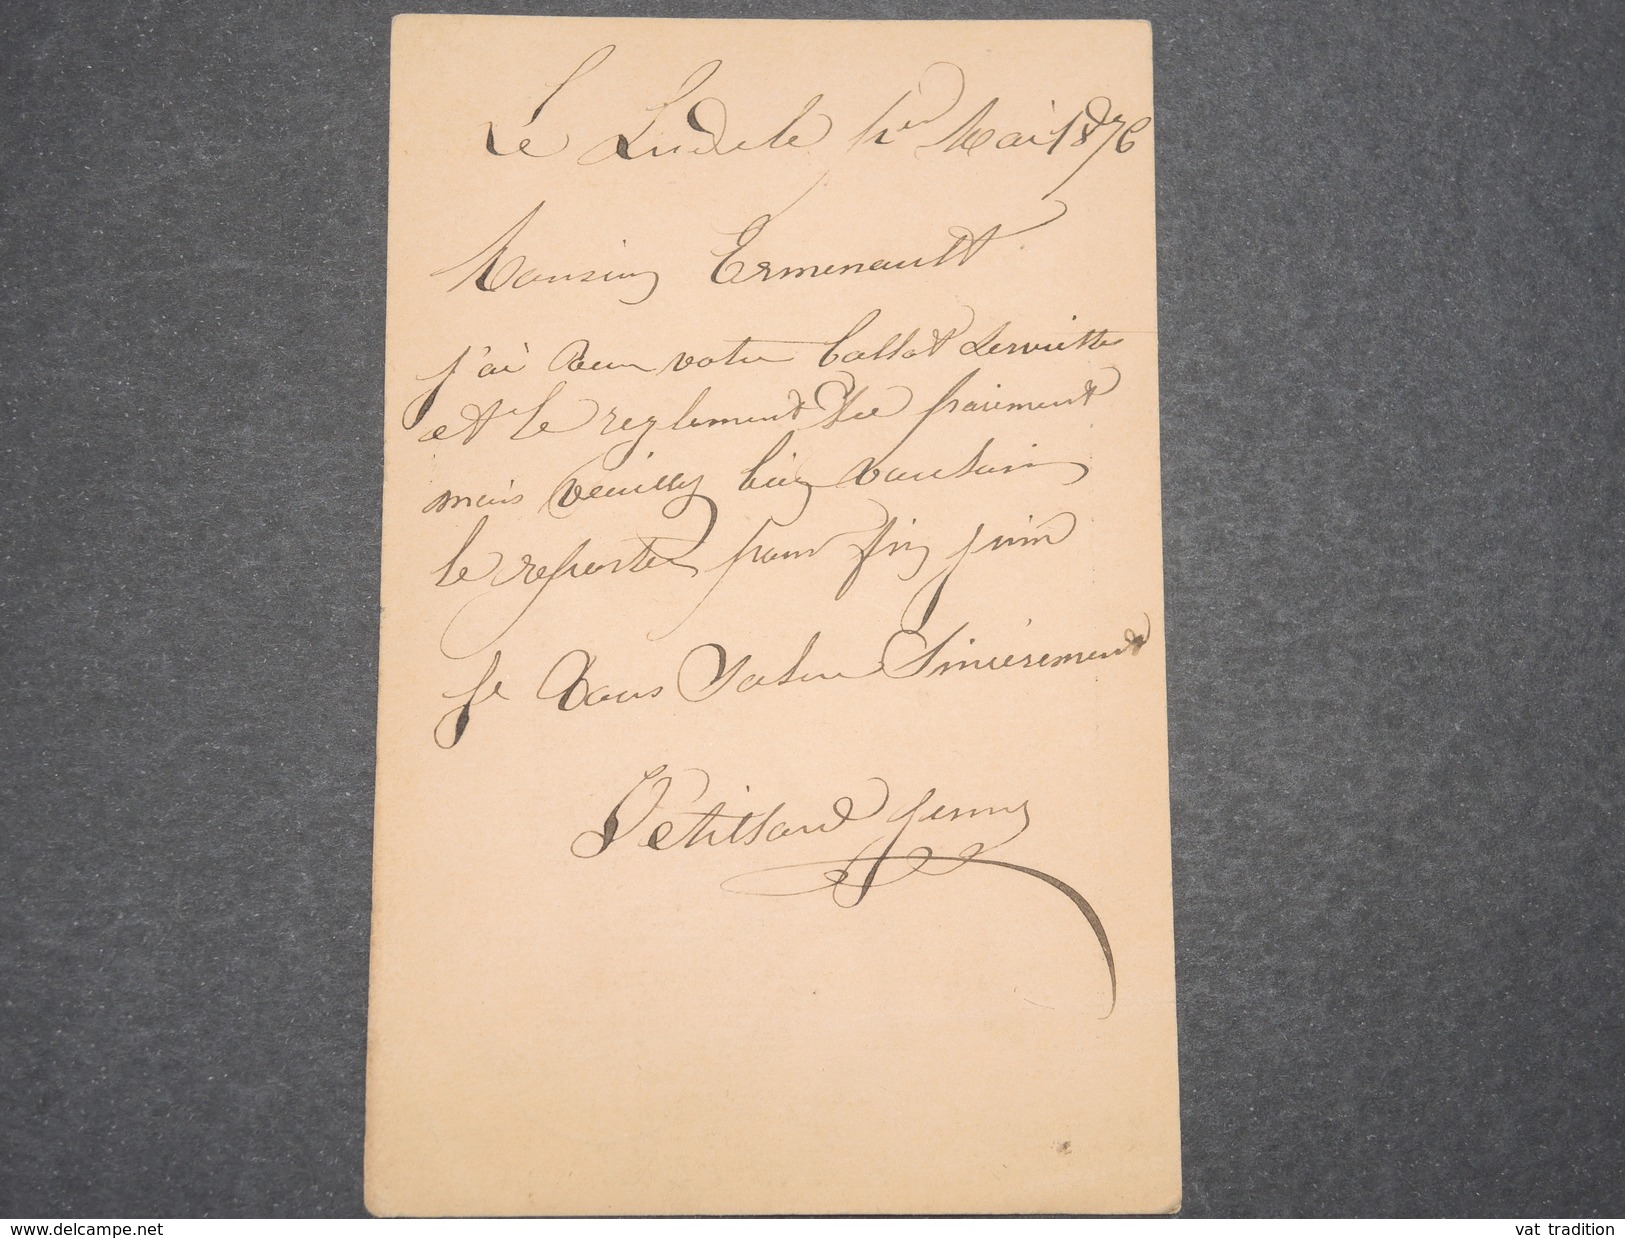 Le Lude le 1er Mai 1876
Monsieur Ermenault
j'ai Recu votre ballot Serviettes
et le reglement de paiement
mais veuillez bien
le reporter pour fin juin
Je Vous Salue Sincèrement
Petillard
delcampe.net
vat_tradition